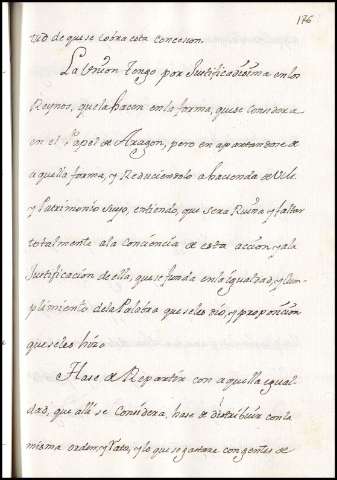 176
tud de que se cobra esta concesion.
La Union tengo por Justificadissima en los
Reynos, que la hacen en la forma, que se considera
en el Papel de Aragon, pero en apartandose de
aquella forma, y Reduciendolo a hacienda de
y Patrimonio suyo, entiendo, que sera Ruina y faltar
totalmente a la Conciencia de esta accion, y a la
Justificacion de ella, que se funda en la igualdad, y Cum-
plimiento de la Palabra que se les dio, y proposicion
que se les hizo
Hase de Repartir con aquella igual
dad, que alli se Considera, hase de distribuir con la
misma orden, y y lo que se gastare con gentes de